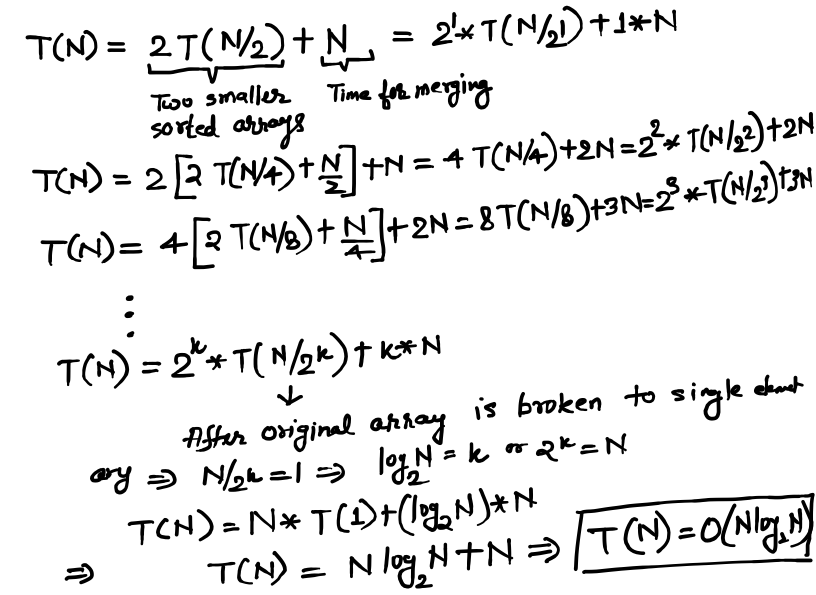 T(N) = 2T(N/2) + N = 2¹* T(N/2¹) + 1*N
Two smaller sorted arrays Time for merging
T(N) = 2[2 T(N/4) + N/2] + N = 4 T(N/4) + 2N = 2²* T(N/2²) + 2N
T(N) = 4[2 T(N/8) + N/4] + 2N = 8T(N/8) + 3N = 2³ * T(N/2³) + 3N
⋮
T(N) = 2ᵏ * T(N/2ᵏ) + k*N
↓
After original array is broken to single elemnt
arry ⇒ N/2ᵏ = 1 ⇒ log₂N = k or 2ᵏ = N
T(N) = N* T(1) + (log₂N)*N
⇒ T(N) = N log₂N + N ⇒ T(N) = O(Nlog₂N)